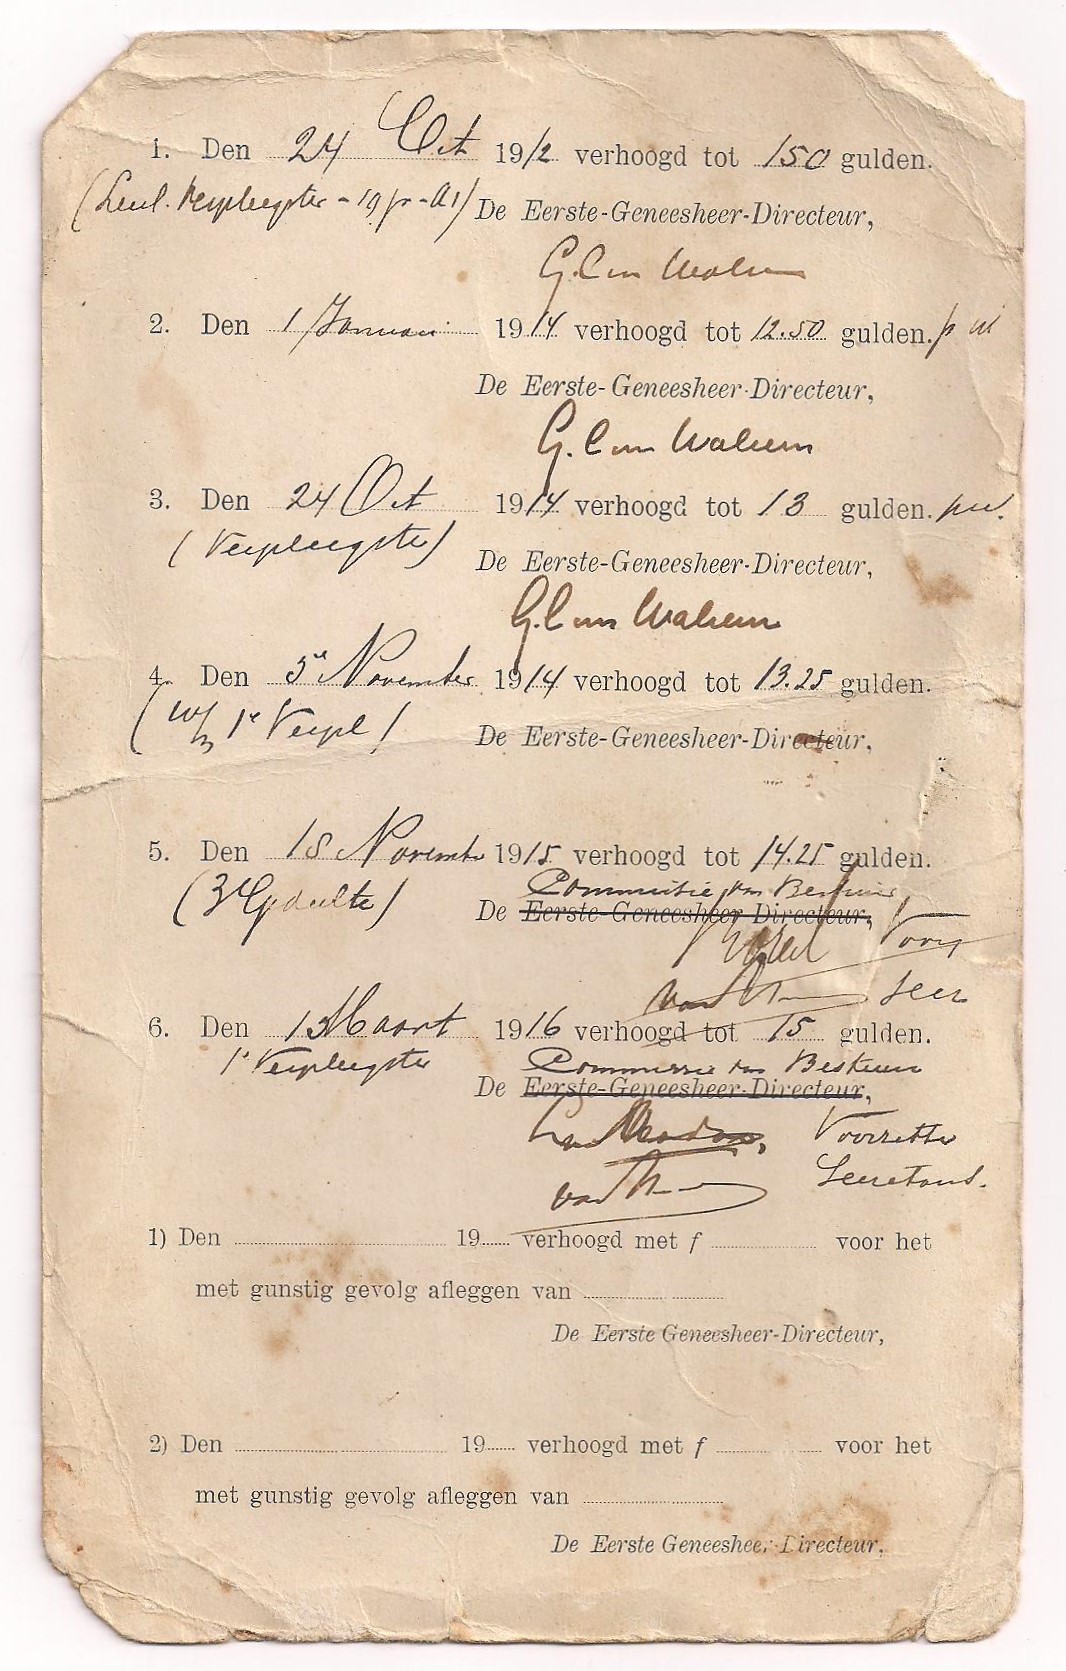 1. Den 24 Oct 1912 verhoogd tot 150 gulden.
(Leerl. Verpleegster - 19 jr -
De Eerste-Geneesheer-Directeur,
G. C van Walsem
2. Den 1 Januari 1914 verhoogd tot 12.50 gulden.
De Eerste-Geneesheer-Directeur,
G. C van Walsem
3. Den 24 Oct 1914 verhoogd tot 13 gulden.
(Verpleegster)
De Eerste-Geneesheer-Directeur,
G. C van Walsem
4. Den 5e November 1914 verhoogd tot 13.25 gulden.
(w/ 1e Verpl)
De Eerste-Geneesheer-Directeur,
5. Den 18 Novemb 1915 verhoogd tot 14.25 gulden.
(3e Gedeelte)
Commissie van Bestuur,
De Eerste-Geneesheer-Directeur,
Voorz
Secr
6. Den 1 Maart 1916 verhoogd tot 15 gulden.
1e Verpleegster
Commissie van Bestuur
De Eerste-Geneesheer-Directeur,
Voorzitter
Secretaris.
1) Den 19 verhoogd met f voor het
met gunstig gevolg afleggen van
De Eerste Geneesheer-Directeur,
2) Den 19 verhoogd met f voor het
met gunstig gevolg afleggen van
De Eerste Geneesheer-Directeur,